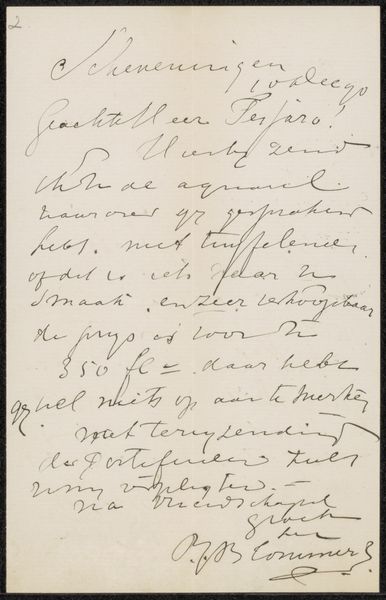 2
Scheveningen
10 dec 90
Geachte Heer Tesjaro!
Hierby zend
ik U de aquarel
waarover gy gesproken
hebt. niet twyfelende,
of dit is iets naar Uw
smaak. en zeer verkoopbaar
de prys is voor U
350 fl = daar hebt
gy wel niets op aan te merken
met terugzending
der Portefeuille zult
u my verpligten. -
na vriendschapel
groeten
B. J. Blommers